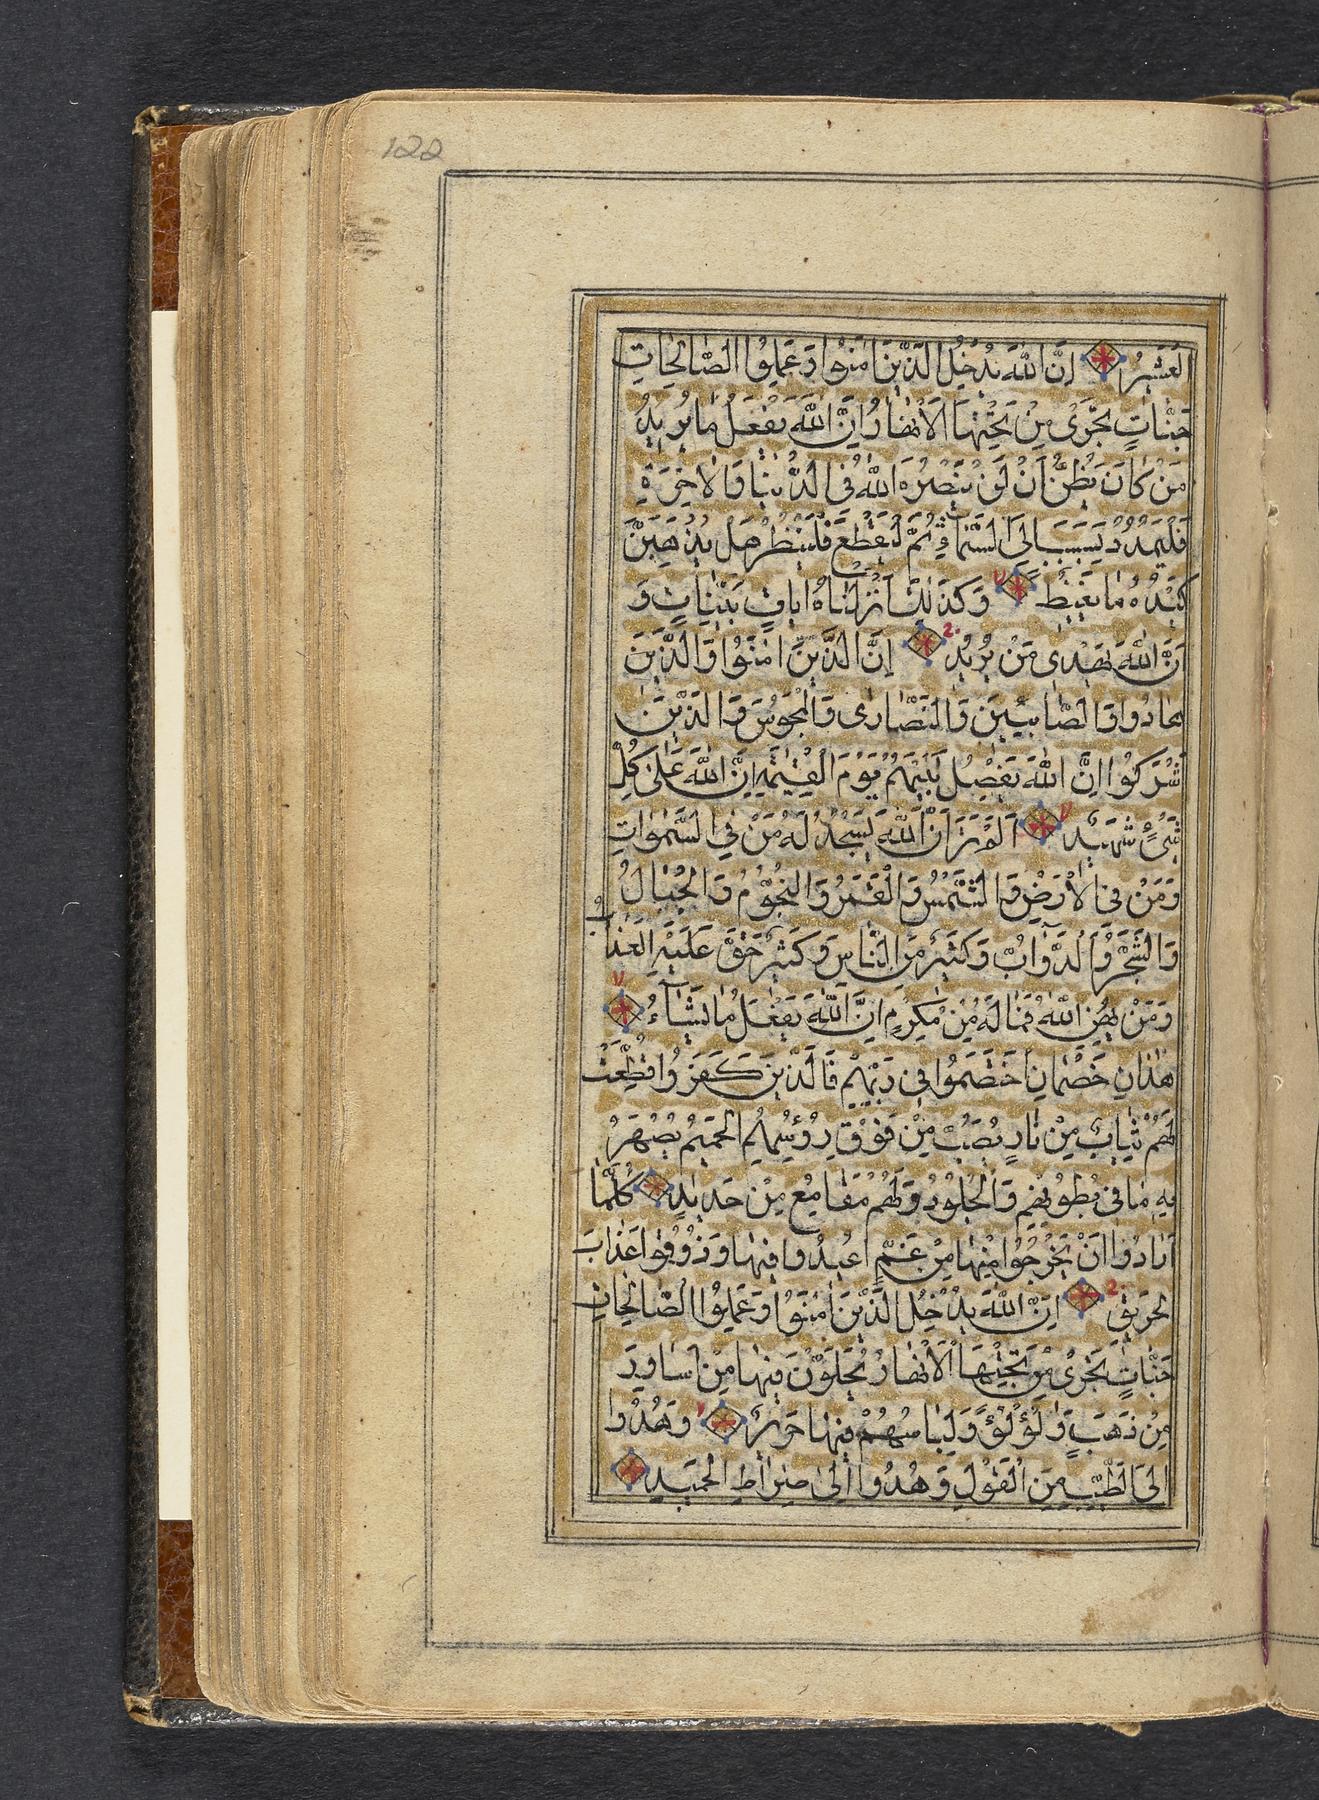 122
العَشِيرُ اِنَّ اللّٰهَ يُدْخِلُ الَّذِينَ اٰمَنُوا وَعَمِلُوا الصَّالِحَاتِ
جَنَّاتٍ تَجْرِى مِنْ تَحْتِهَا الْاَنْهَارُ اِنَّ اللّٰهَ يَفْعَلُ مَا يُرِيدُ
مَنْ كَانَ يَظُنُّ اَنْ لَنْ يَنْصُرَهُ اللّٰهُ فِى الدُّنْيَا وَالْاٰخِرَةِ
فَلْيَمْدُدْ بِسَبَبٍ اِلَى السَّمَاۤءِ ثُمَّ لْيَقْطَعْ فَلْيَنْظُرْ هَلْ يُذْهِبَنَّ
كَيْدُهُ مَا يَغِيظُ وَكَذٰلِكَ اَنْزَلْنَاهُ اٰيَاتٍ بَيِّنَاتٍ وَ
اَنَّ اللّٰهَ يَهْدِى مَنْ يُرِيدُ اِنَّ الَّذِينَ اٰمَنُوا وَالَّذِينَ
هَادُوا وَالصَّابِـِٔينَ وَالنَّصَارٰى وَالْمَجُوسَ وَالَّذِينَ
اَشْرَكُوا اِنَّ اللّٰهَ يَفْصِلُ بَيْنَهُمْ يَوْمَ الْقِيٰمَةِ اِنَّ اللّٰهَ عَلٰى كُلِّ
شَىْءٍ شَهِيدٌ اَلَمْ تَرَ اَنَّ اللّٰهَ يَسْجُدُ لَهُ مَنْ فِى السَّمٰوَاتِ
وَمَنْ فِى الْاَرْضِ وَالشَّمْسُ وَالْقَمَرُ وَالنُّجُومُ وَالْجِبَالُ
وَالشَّجَرُ وَالدَّوَاۤبُّ وَكَثِيرٌ مِنَ النَّاسِ وَكَثِيرٌ حَقَّ عَلَيْهِ الْعَذَابُ
وَمَنْ يُهِنِ اللّٰهُ فَمَا لَهُ مِنْ مُكْرِمٍ اِنَّ اللّٰهَ يَفْعَلُ مَا يَشَاۤءُ
هٰذَانِ خَصْمَانِ اخْتَصَمُوا فِى رَبِّهِمْ فَالَّذِينَ كَفَرُوا قُطِّعَتْ
لَهُمْ ثِيَابٌ مِنْ نَارٍ يُصَبُّ مِنْ فَوْقِ رُؤُسِهِمُ الْحَمِيمُ يُصْهَرُ
بِهِ مَا فِى بُطُونِهِمْ وَالْجُلُودُ وَلَهُمْ مَقَامِعُ مِنْ حَدِيدٍ كُلَّمَا
اَرَادُوا اَنْ يَخْرُجُوا مِنْهَا مِنْ غَمٍّ اُعِيدُوا فِيهَا وَذُوقُوا عَذَابَ
الْحَرِيقِ اِنَّ اللّٰهَ يُدْخِلُ الَّذِينَ اٰمَنُوا وَعَمِلُوا الصَّالِحَاتِ
جَنَّاتٍ تَجْرِى مِنْ تَحْتِهَا الْاَنْهَارُ يُحَلَّوْنَ فِيهَا مِنْ اَسَاوِرَ
مِنْ ذَهَبٍ وَلُؤْلُؤًا وَلِبَاسُهُمْ فِيهَا حَرِيرٌ وَهُدُوا
اِلَى الطَّيِّبِ مِنَ الْقَوْلِ وَهُدُوا اِلٰى صِرَاطِ الْحَمِيدِ